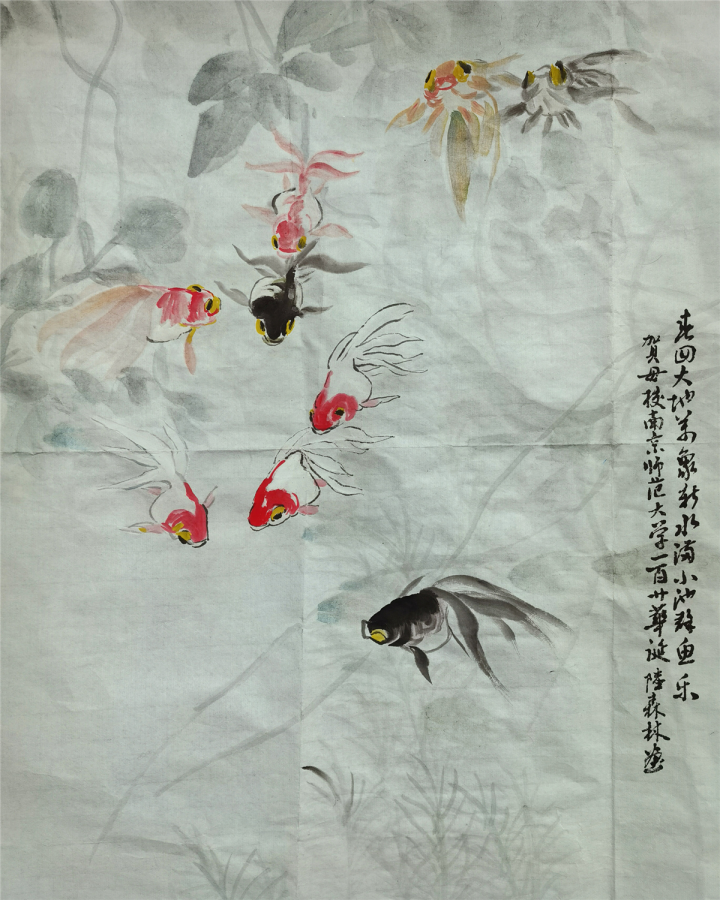 春回大地万象新水满小池群鱼乐
贺母校南京师范大学一百廿华诞 陆森林画